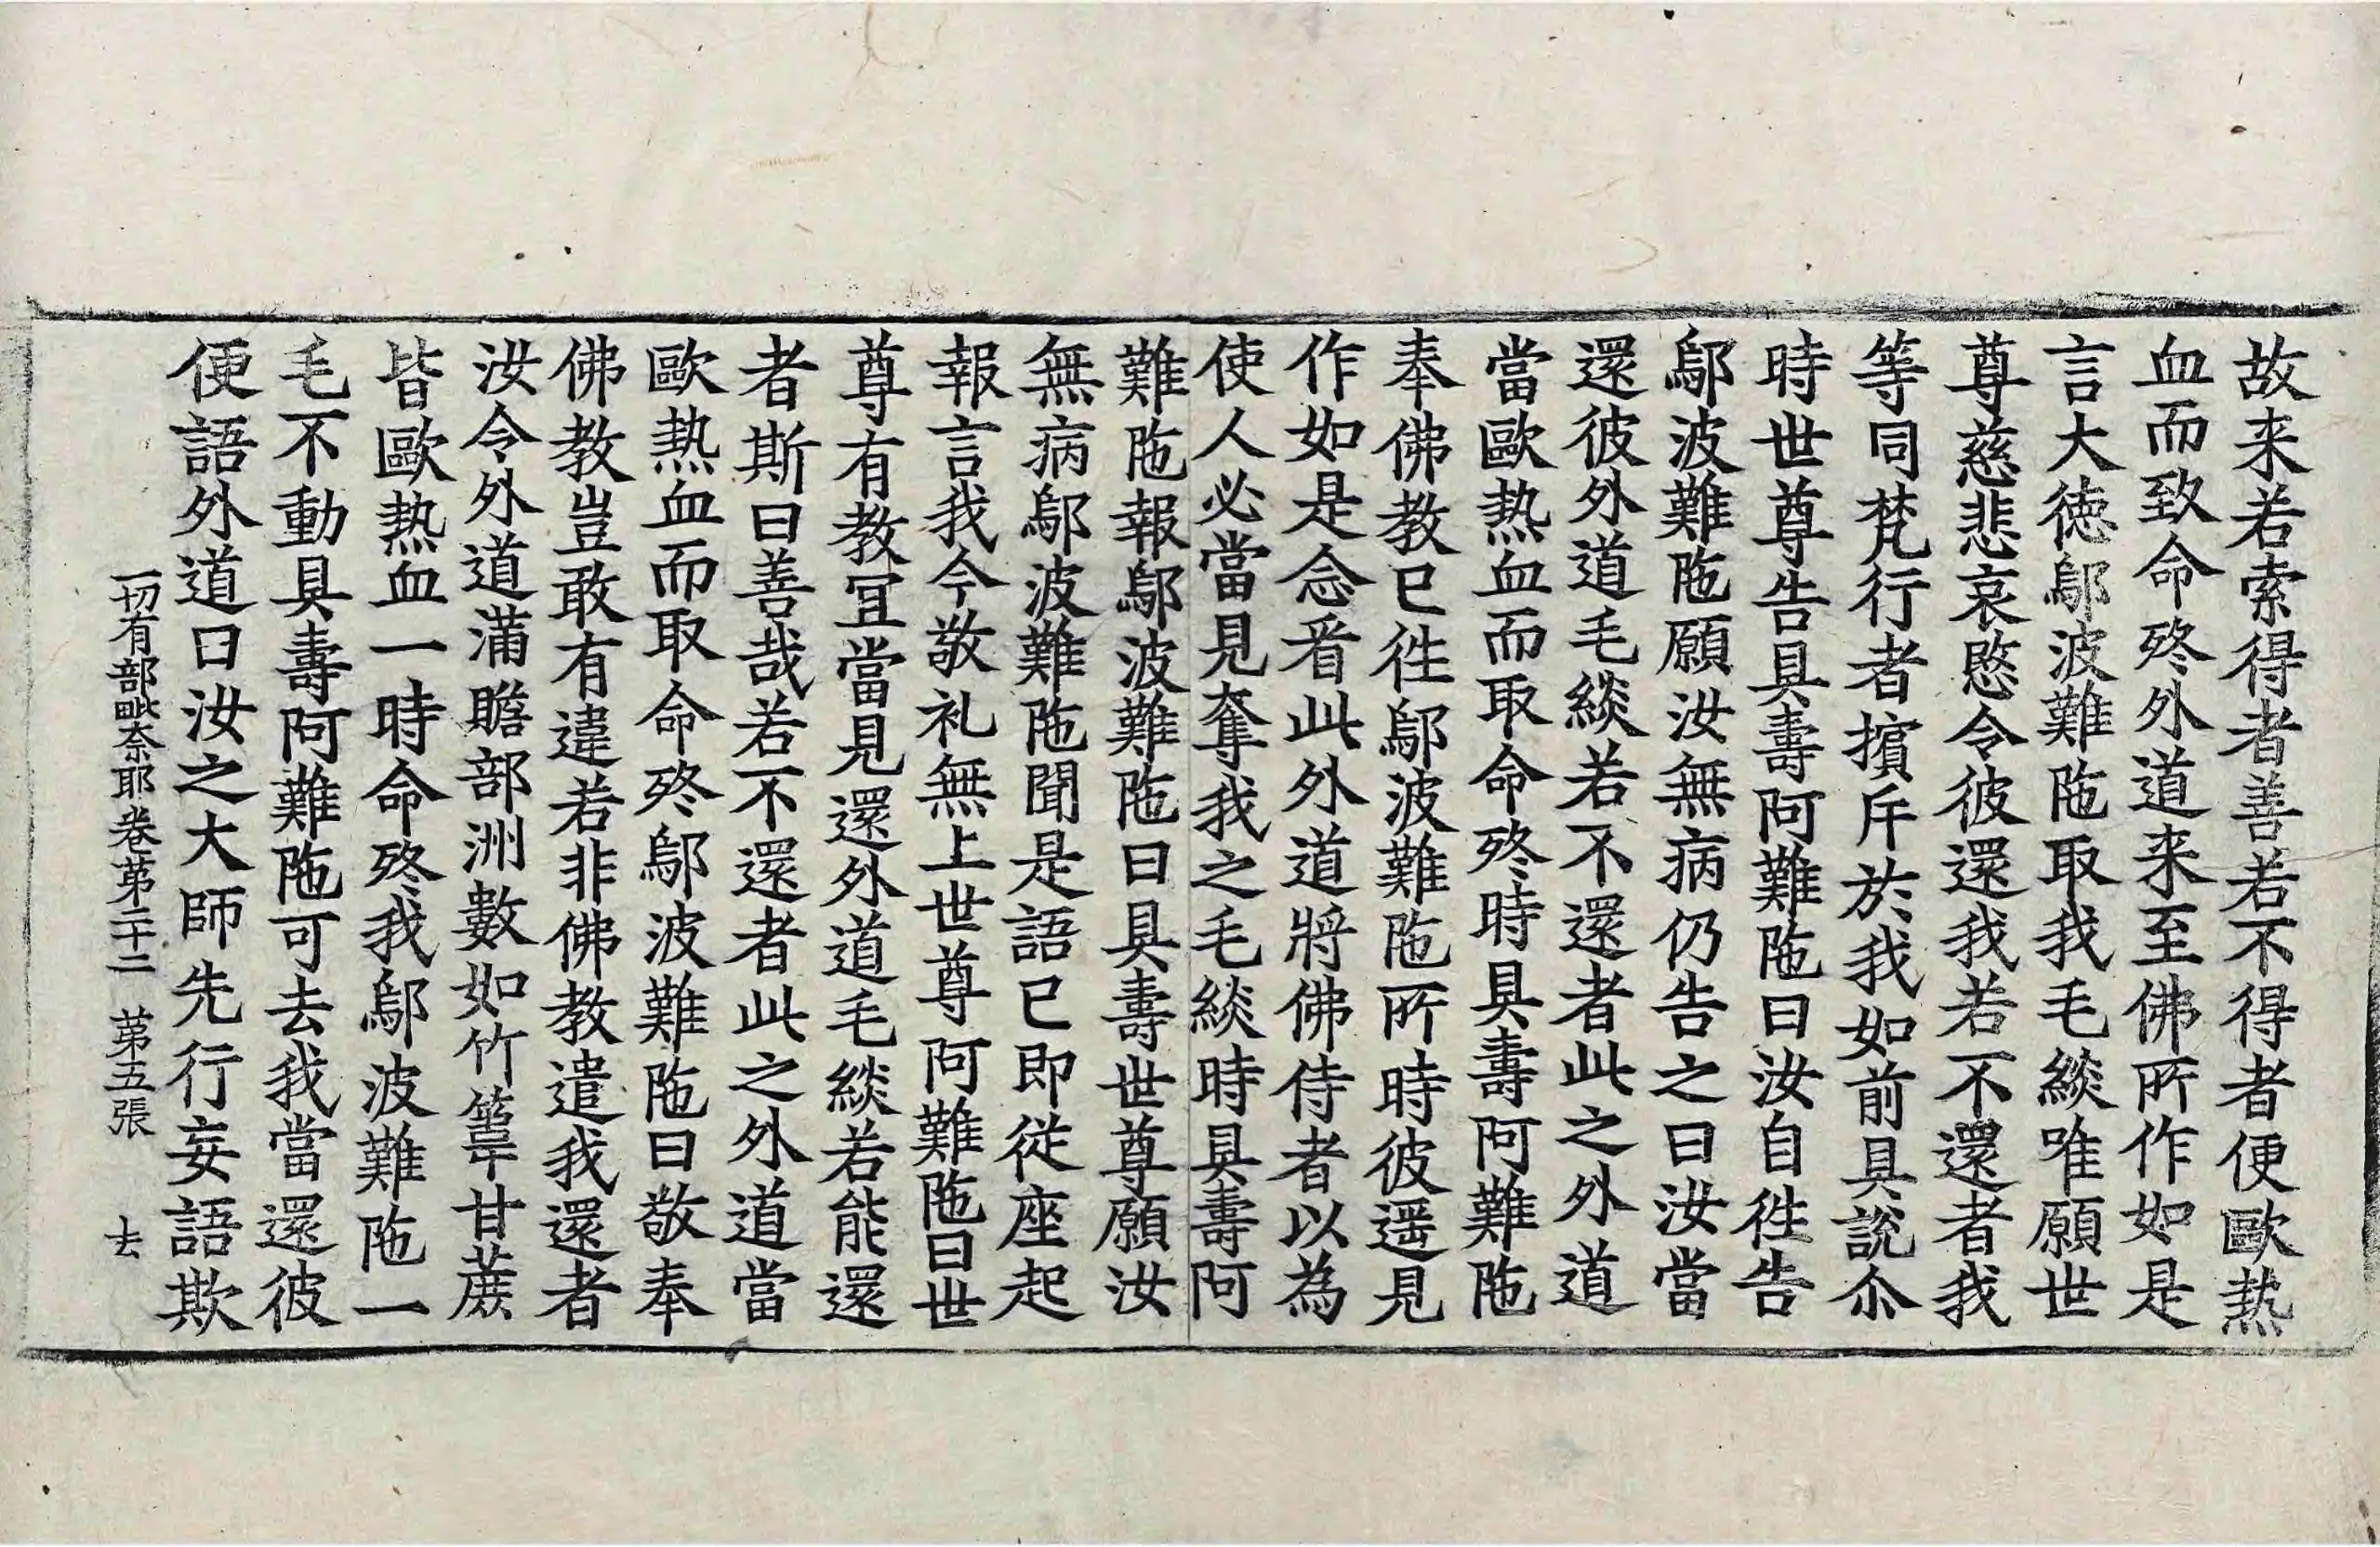 故来若索得者善若不得者便歐熱
血而致命終外道来至佛所作如是
言大徳鄔波難陁取我毛緂唯願世
尊慈悲哀愍令彼還我若不還者我
等同梵行者擯斥於我如前具説尒
時世尊告具壽阿難陁曰汝自徃告
鄔波難陁願汝無病仍告之曰汝當
還彼外道毛緂若不還者此之外道
當歐熱血而取命終時具壽阿難陁
奉佛教已徃鄔波難陁所時彼遥見
作如是念看此外道將佛侍者以為
使人必當見奪我之毛緂時具壽阿
難陁報鄔波難陁曰具壽世尊願汝
無病鄔波難陁聞是語已即從座起
報言我今敬礼無上世尊阿難陁曰世
尊有教冝當見還外道毛緂若能還
者斯曰善哉若不還者此之外道當
歐熱血而取命終鄔波難陁曰敬奉
佛教豈敢有違若非佛教遣我還者
汝令外道滿贍部洲數如竹葦甘蔗
皆歐熱血一時命終我鄔波難陁一
毛不動具壽阿難陁可去我當還彼
便語外道曰汝之大師先行妄語欺
一切有部毗奈耶卷第二十二　第五張　去